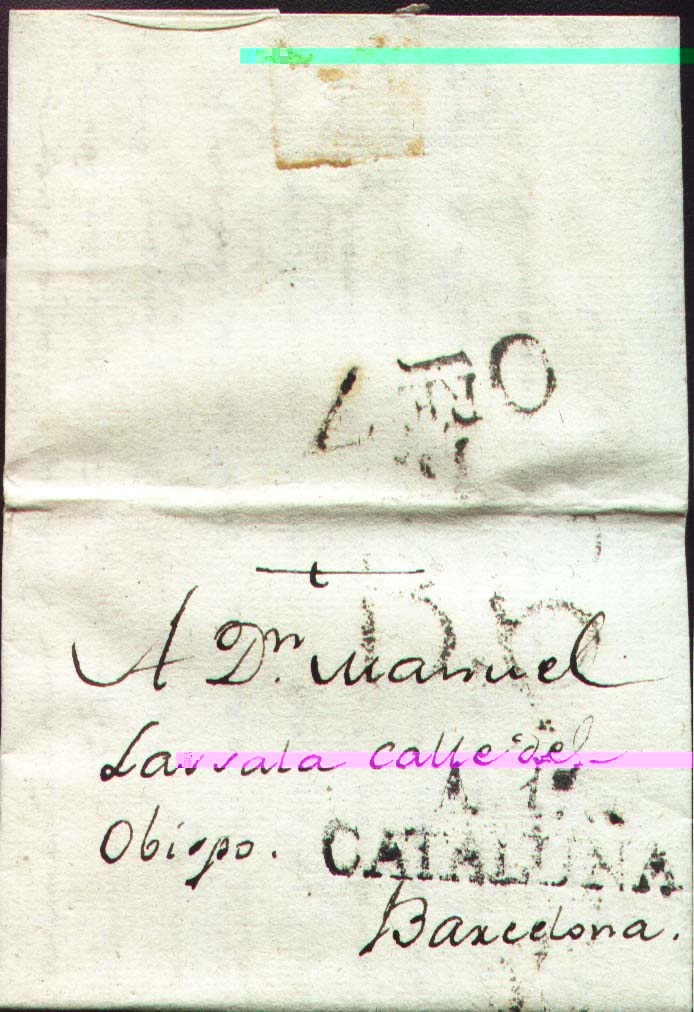 A Dn. Manuel
Lassala calle del
Obispo.
A 1
CATALUÑA
Barcelona.